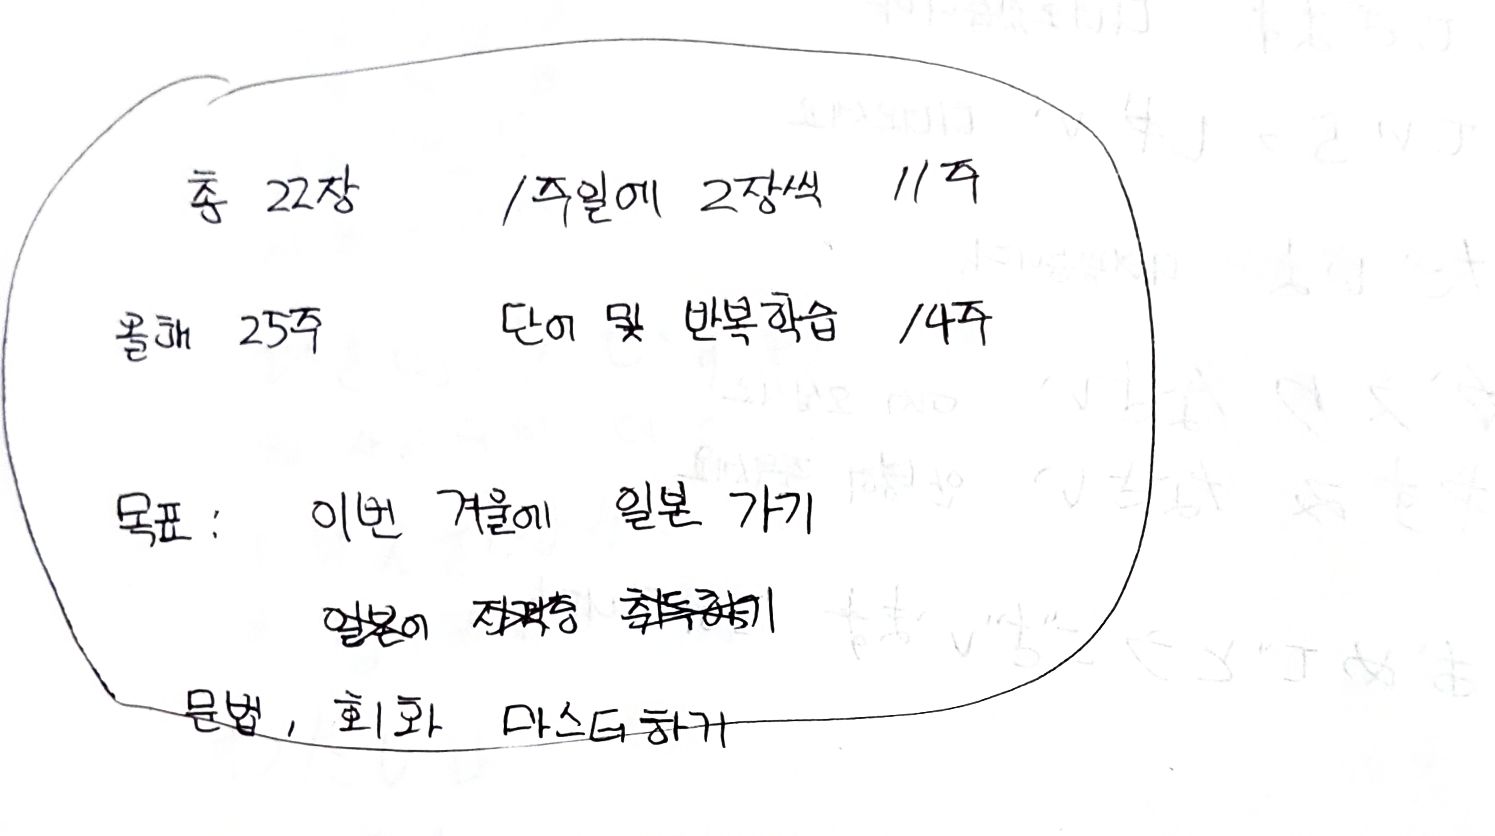 총 22장 1주일에 2장씩 11주
올해 25주 단어 및 반복학습 14주
목표 : 이번 겨울에 일본 가기
일본어 자격증 취득하기
문법, 회화 마스터하기